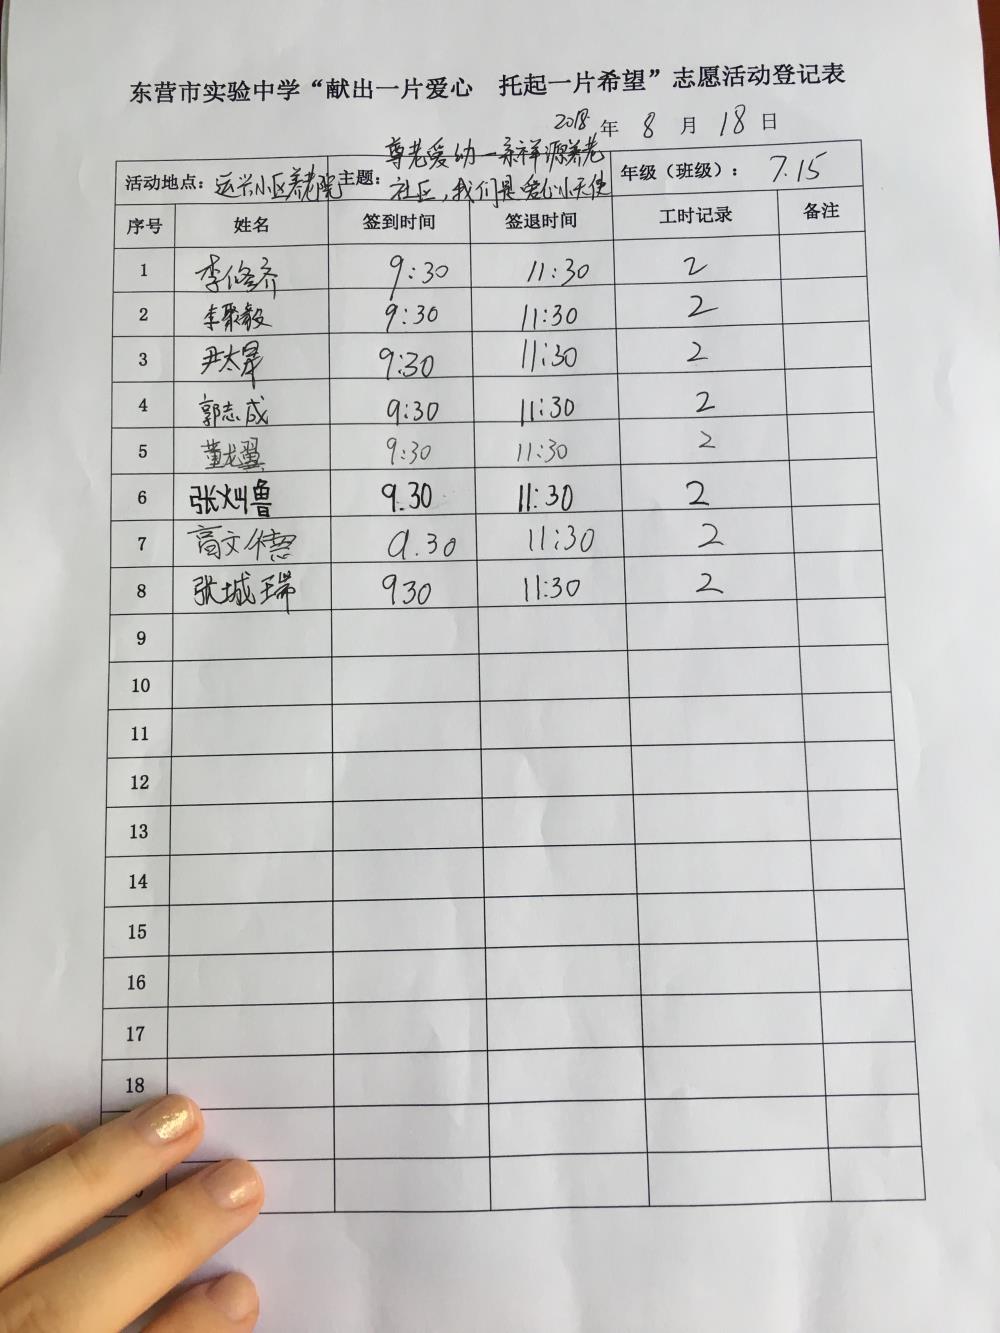 东营市实验中学“献出一片爱心 托起一片希望”志愿活动登记表
2018 年 8 月 18 日
活动地点：运兴小区养老院 主题：尊老爱幼一亲祥源养老社区，我们是爱心小天使 年级（班级）：7.15
序号 姓名 签到时间 签退时间 工时记录 备注
1 李修齐 9:30 11:30 2
2 李聚毅 9:30 11:30 2
3 尹太 9:30 11:30 2
4 郭志成 9:30 11:30 2
5 董龙翼 9:30 11:30 2
6 张灿鲁 9.30 11:30 2
7 高文德 9.30 11:30 2
8 张城瑞 930 11:30 2
9
10
11
12
13
14
15
16
17
18